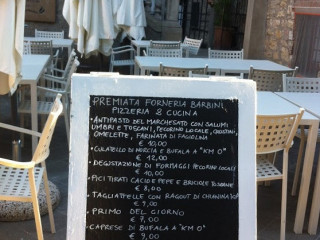 PREMIATA FORNERIA BARBINI
PIZZERIA & CUCINA
• ANTIPASTO DEL MARCHESATO CON SALUMI
UMBRI E TOSCANI, PECORINO LOCALE, CROSTINI,
OMELETTE, FARINATA DI FAGIOLINA
€ 10,00
• CULATELLO DI NORCIA E BUFALA A "KM 0"
€ 12,00
• DEGUSTAZIONE DI FORMAGGI PECORINO LOCALE
€ 10,00
• PICI TIRATI CACIO E PEPE E BRICIOLE DI
€ 8,00
• TAGLIATELLE CON RAGOUT DI CHIANINA
€ 9,00
• PRIMO DEL GIORNO
€ 7,00
• CAPRESE DI BUFALA A "KM 0"
€ 9,00